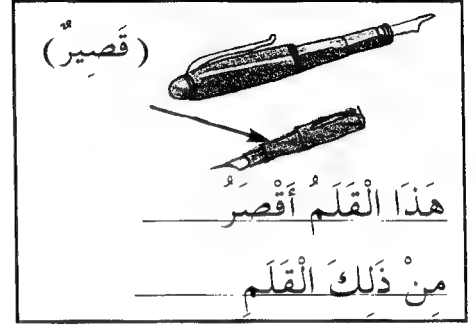 (قَصِيرٌ)
هَذَا الْقَلَمُ أَقْصَرُ
مِنْ ذَلِكَ الْقَلَمِ